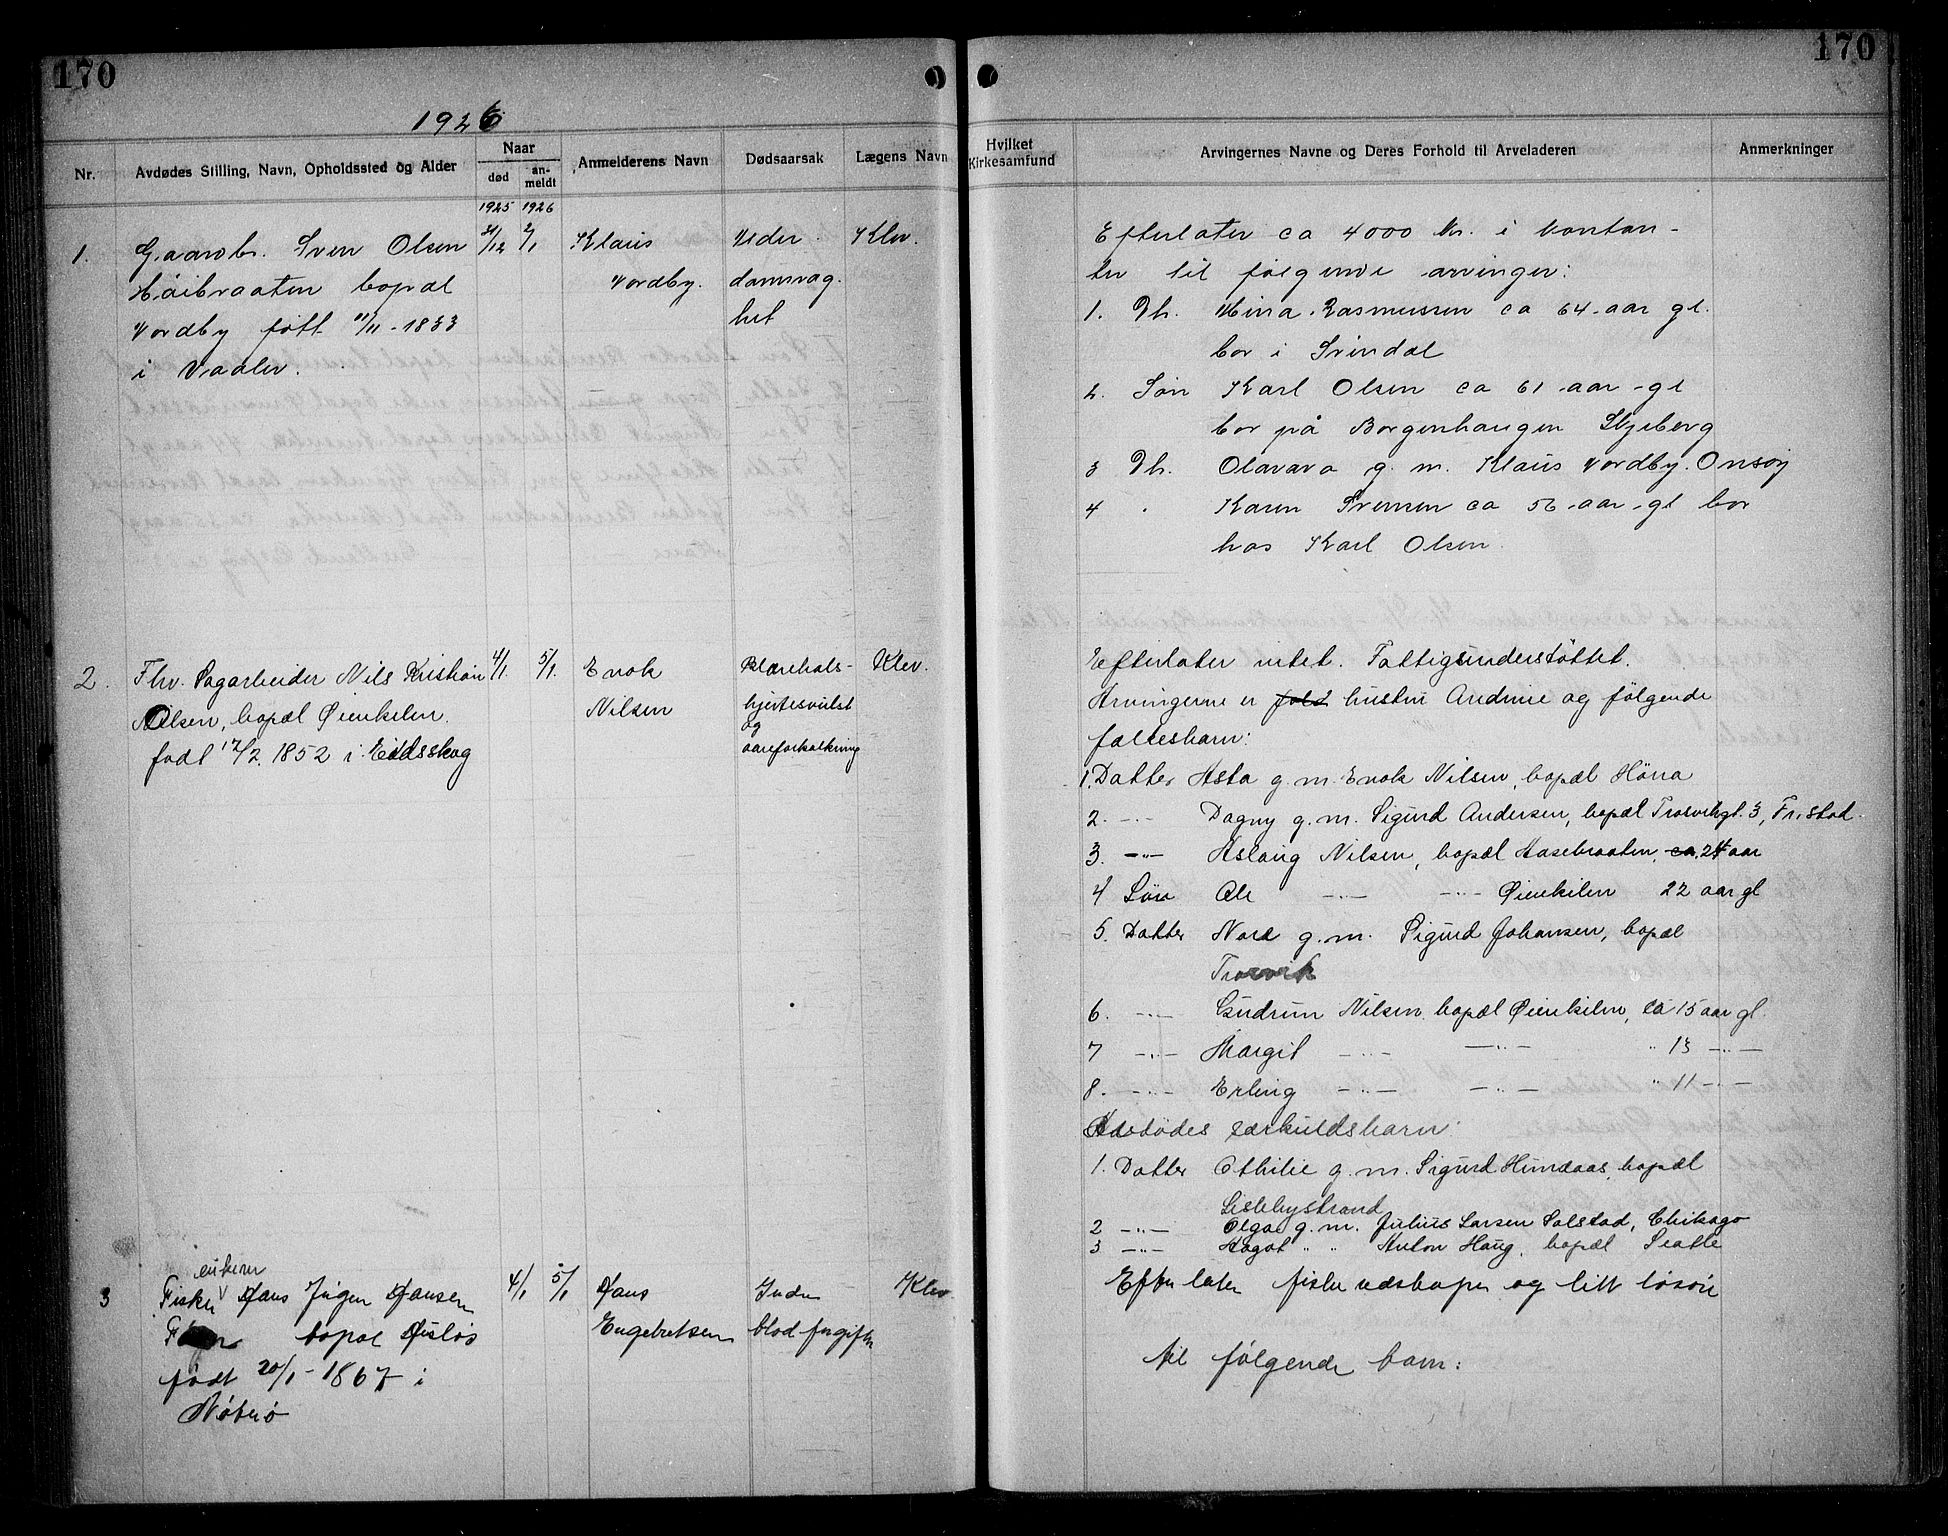 170
1926
Nr.
Avdødes Stilling, Navn, Opholdssted og Alder
Naar
død
an-
meldt
Anmelderens Navn
Dødsaarsak
Lægens Navn
1925 1926
1. Gaardbr. Sven Olsen 31/12 2/1 Klaus Alder- Klev.
Høibraaten bopæl Nordby. domsvag-
Nordby født 11/11-1833 het
i Vaaler.
2. Fhv. Sagarbeider Nils Kristian 4/1. 5/1. Enok Klev.
Nilsen, bopæl Øienkilen. Nilsen hjertesvulst
og
født 12/2. 1852 i Eidsskog aareforkalkning
enkem
3 Fisker Hans Jørgen Hansen 4/1 5/1 Hans Indre Klev
bopæl Øisløs Engebretsen blodforgiftn
født 20/1-1867 i
Nøterø
170
Hvilket
Kirkesamfund
Arvingernes Navne og Deres Forhold til Arveladeren
Anmerkninger
Efterlater ca 4000 kr. i kontan-
ter til følgende arvinger:
1. Dt. Mina Rasmussen ca 64 aar gl.
bor i Svindal
2. Søn Karl Olsen ca 61 aar gl
bor på Borgenhaugen Skjeberg
3 Dt. Olavava g. m. Klaus Nordby. Onsøy
4 " Karen Svensen ca 56 aar gl bor
hos Karl Olsen.
Efterlater intet. Fattigunderstøttet.
Arvingerne er hustru Andrine og følgende
fællesbarn:
1. Datter Asta g. m. Enok Nilsen, bopæl Hørra
2. -"- Dagny g. m. Sigurd Andersen, bopæl Trosvikgt. 3, Fr.stad.
3. -"- Aslaug Nilsen, bopæl Aasebraaten, ca. 24 aar
4 Søn Ole -"- -"- Øienkilen 22 aar gl
5. Datter Nora g. m. Sigurd Johansen, bopæl
Trosvik
6. -"- Gudrun Nilsen bopæl Øienkilen, ca 15 aar gl.
7 -"- Margit -"- -"- " 13 -"-
8. -"- Erling -"- -"- " 11 -"-
Avdødes særkuldsbarn:
1. Datter Othilie g. m. Sigurd Hundaas, bopæl
Lislebystrand
2 -"- Olga g. m. Julius Larsen Solstad, Chikago
3 -"- Hagot " " Anton Haug, bopæl Seatle
Efterlater fiskeredskaper og litt løsøre
til følgende barn: